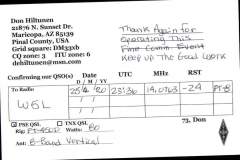 Don Hiltunen
21876 N. Sunset Dr.
Maricopa, AZ 85139
Pinal County, USA
Grid square: DM33xb
CQ zone: 3 ITU zone: 6
Thank Again for
Operating This
Fine Comm. Event
Keep up the Good Work
Confirming our QSO(s)
To Radio
W6L
Date
D / M / Y
D / M / YY
UTC
MHz
RST
2336
14.0763
-24
PSE QSL
TNX QSL
Rig:
Watts: 80
Ant: 8-Band Vertical
73, Don